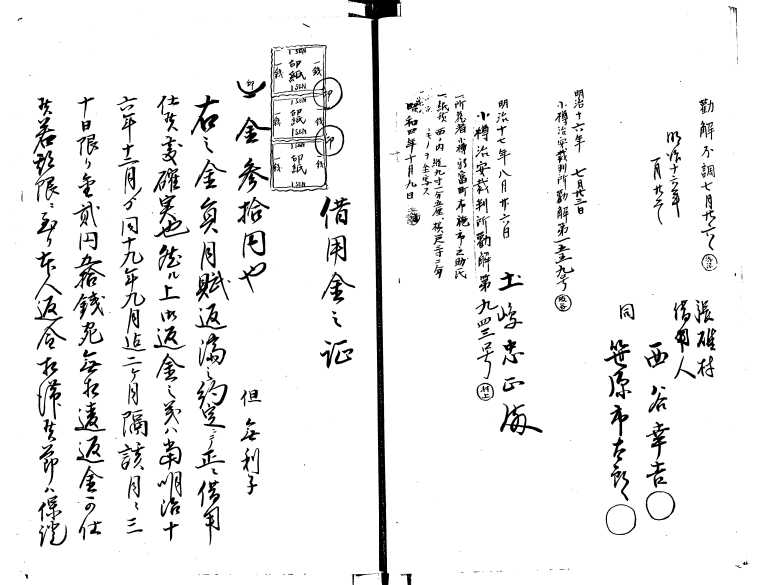 勤解不調七月廿六日
明治十六年
一月廿二
張碓村
借用人
西谷幸吉
同
笹原市太郎
明治十六年 七月廿三日
小樽治安裁判所勤解第一五五九号
土崎忠正殿
明治十七年八月廿六日
小樽治安裁判所勤解第九四三号
村上
一所見者小樽
富町市
市之助氏
昭和四年十月九日
借用金之证
1 SEN
印紙
一銭
1 SEN
印紙
一銭
1 SEN
印紙
一銭
1 SEN
印
印
印
一金参拾円也
但無利子
右之金員月賦返済之約定ニテ正ニ借用
仕候処確実也然ル上ハ返金之義ハ当明治十
六年十二月ゟ同十九年九月迄二ケ月隔該月ニ三
十日限リ金貳円五拾銭宛無相違返金可仕
候若期限ニ至リ本人返金相滞候節ハ保證